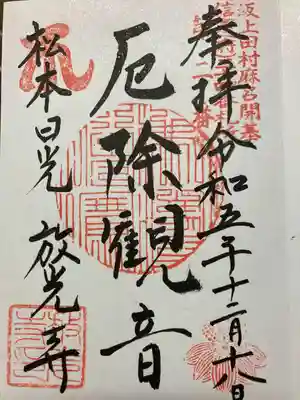 奉拝 令和五年十二月十八日
坂上田村麻呂開基
厄除觀音
松本日光 放光寺